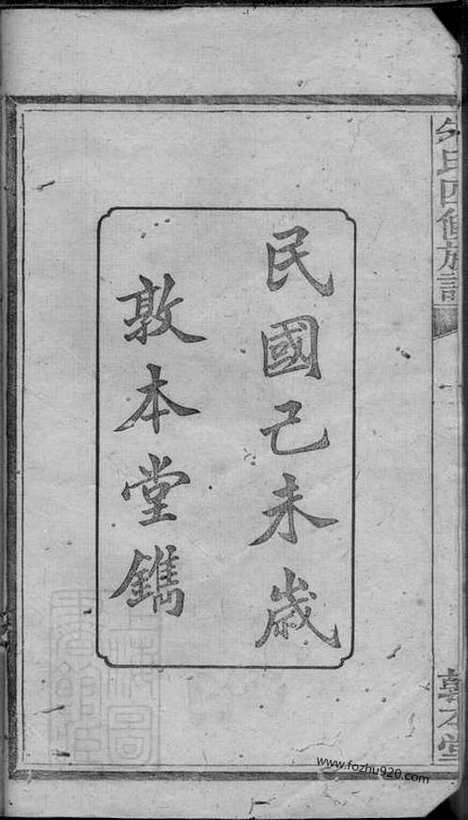 民國己未歲
敦本堂鐫
氏四修族譜
敦本堂
www.fozhu920.com